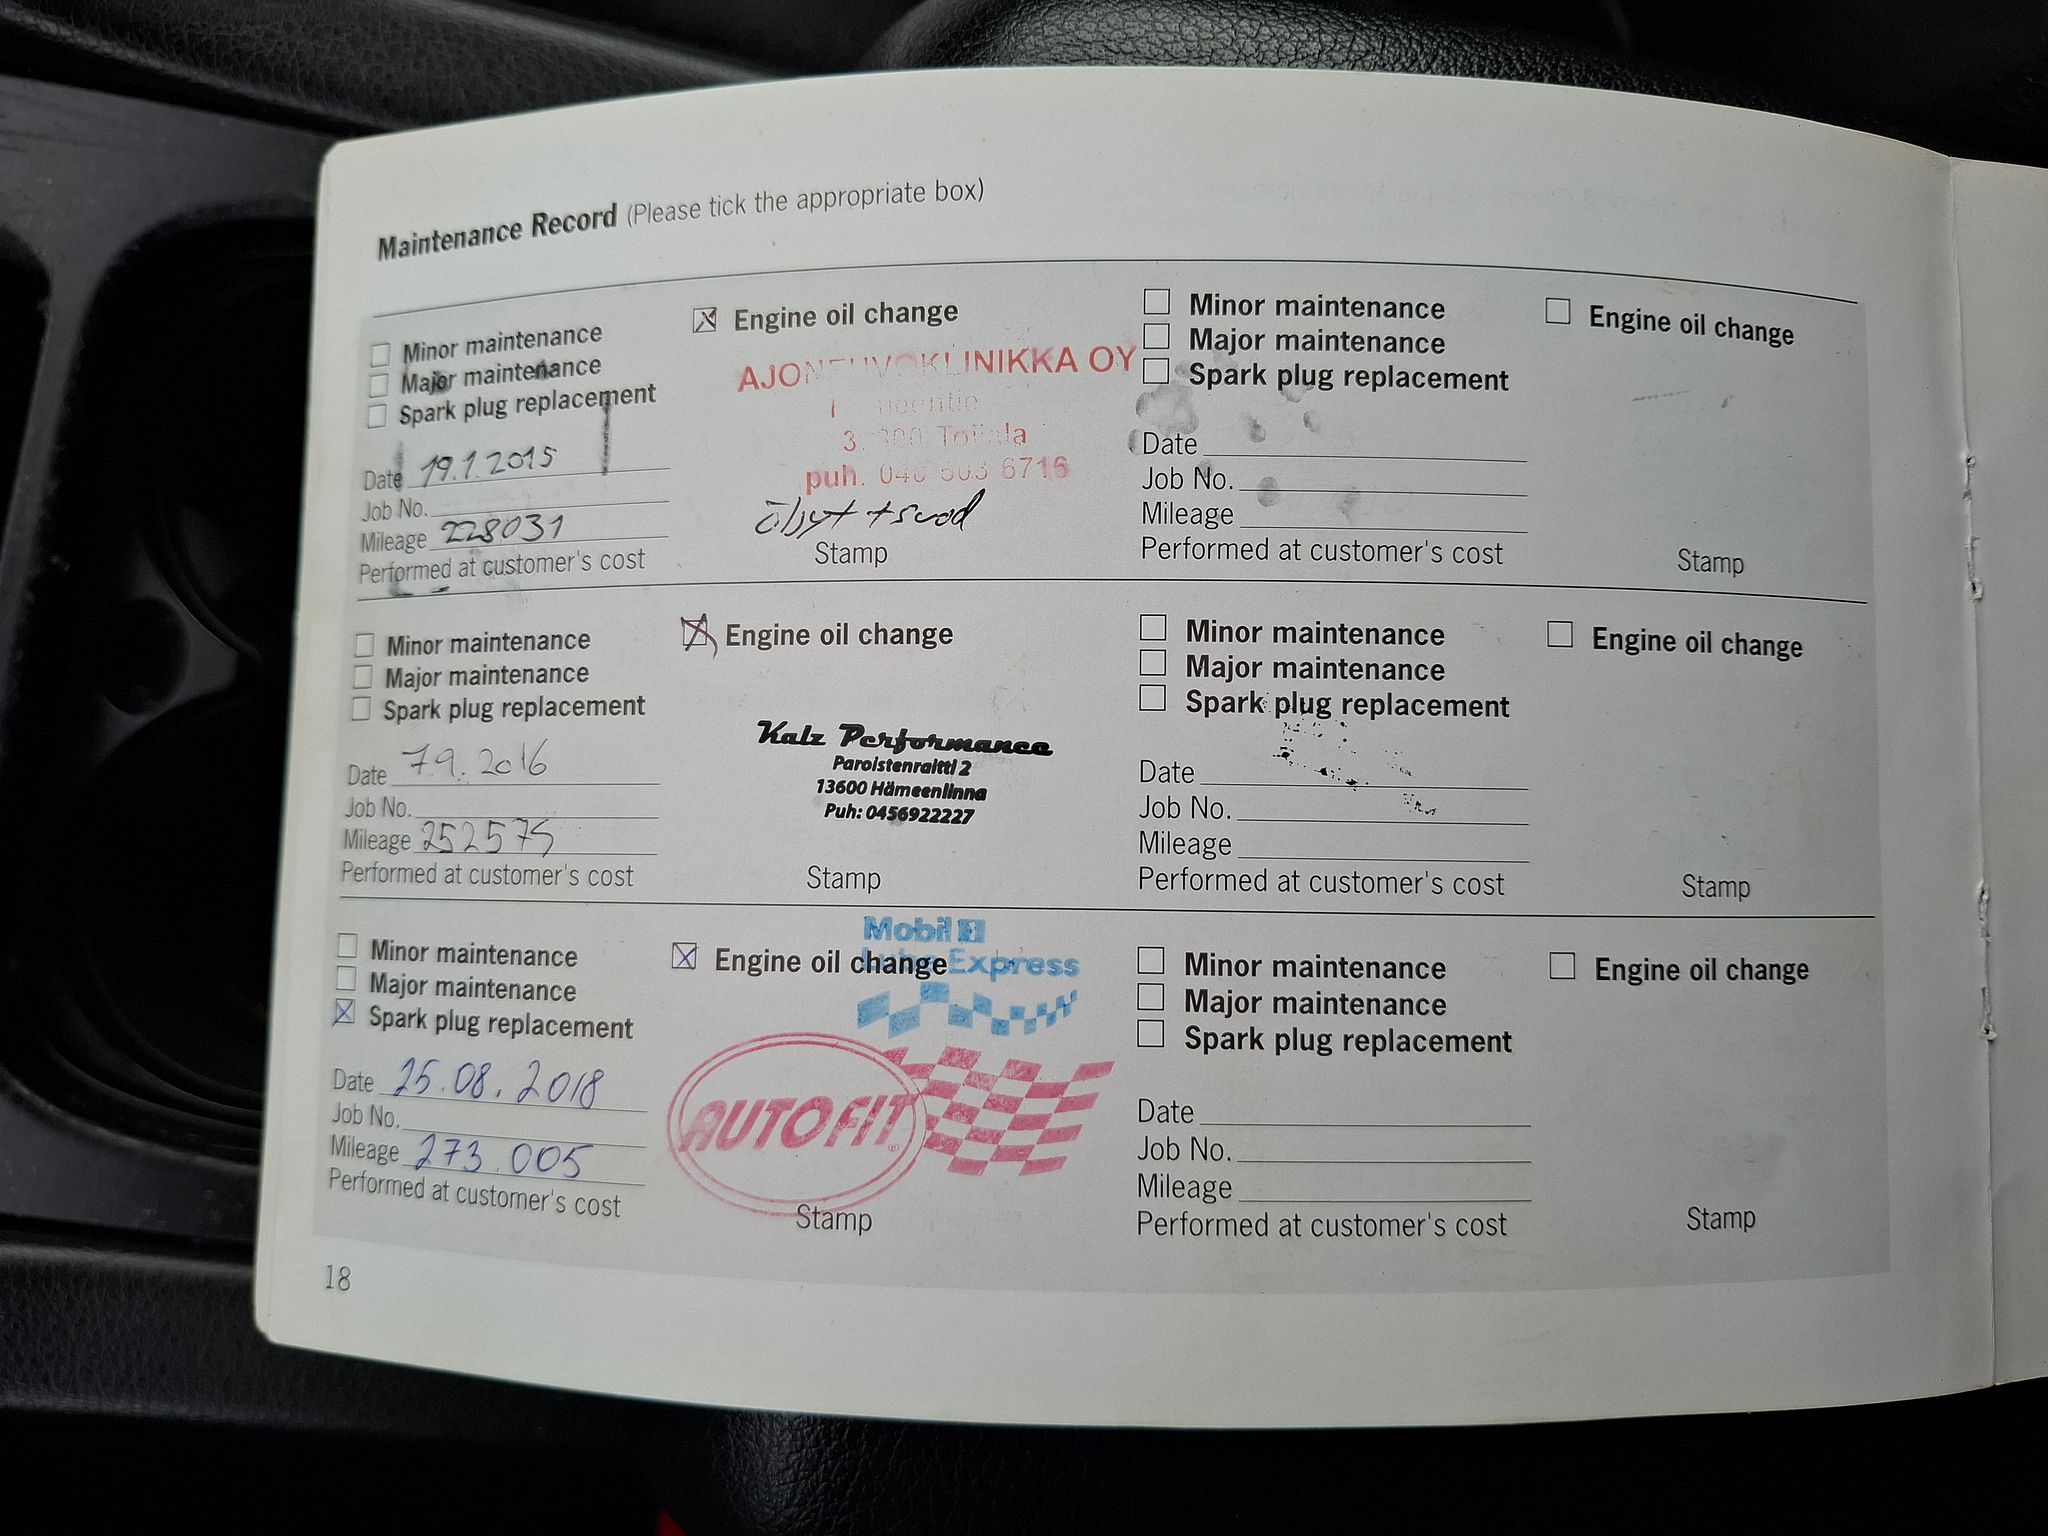 Maintenance Record (Please tick the appropriate box)
Minor maintenance
Major maintenance
Spark plug replacement
Engine oil change
AJONEUVOKLINIKKA OY
Toijala
puh. 040 503 6716
Date 19.1.2015
Job No.
Mileage 228031
Performed at customer's cost
Öljyt + suod
Stamp
Minor maintenance
Major maintenance
Spark plug replacement
Engine oil change
Date
Job No.
Mileage
Performed at customer's cost
Stamp
Minor maintenance
Major maintenance
Spark plug replacement
Engine oil change
Kalz Performance
Paroistenraitti 2
13600 Hämeenlinna
Puh: 0456922227
Date 7.9.2016
Job No.
Mileage 252575
Performed at customer's cost
Stamp
Minor maintenance
Major maintenance
Spark plug replacement
Engine oil change
Date
Job No.
Mileage
Performed at customer's cost
Stamp
Minor maintenance
Major maintenance
Spark plug replacement
Engine oil change
Mobil 1
Lube Express
AUTOFIT®
Date 25.08.2018
Job No.
Mileage 273.005
Performed at customer's cost
Stamp
Minor maintenance
Major maintenance
Spark plug replacement
Engine oil change
Date
Job No.
Mileage
Performed at customer's cost
Stamp
18